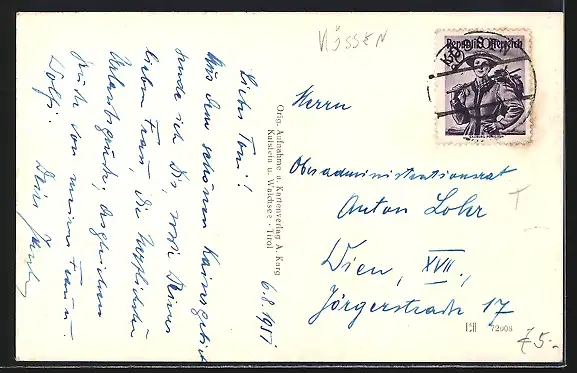 KÖSSEN
Lieber Toni!
Aus dem schönen Kaisergebiet
sende ich Dir, sowie Deiner
lieben Frau, die herzlichsten
Urlaubsgrüße, desgleichen
Grüße von meiner Frau u.
Wolfi.
Dein
6.8.1951
Orig.-Aufnahme u. Kartenverlag A. Karg
Kufstein u. Walchsee - Tirol
Republik Österreich
Herrn
Oberadministrationsrat
Anton Lohr
Wien, XVII.,
Jörgerstraße 17
72008
T
£5.-